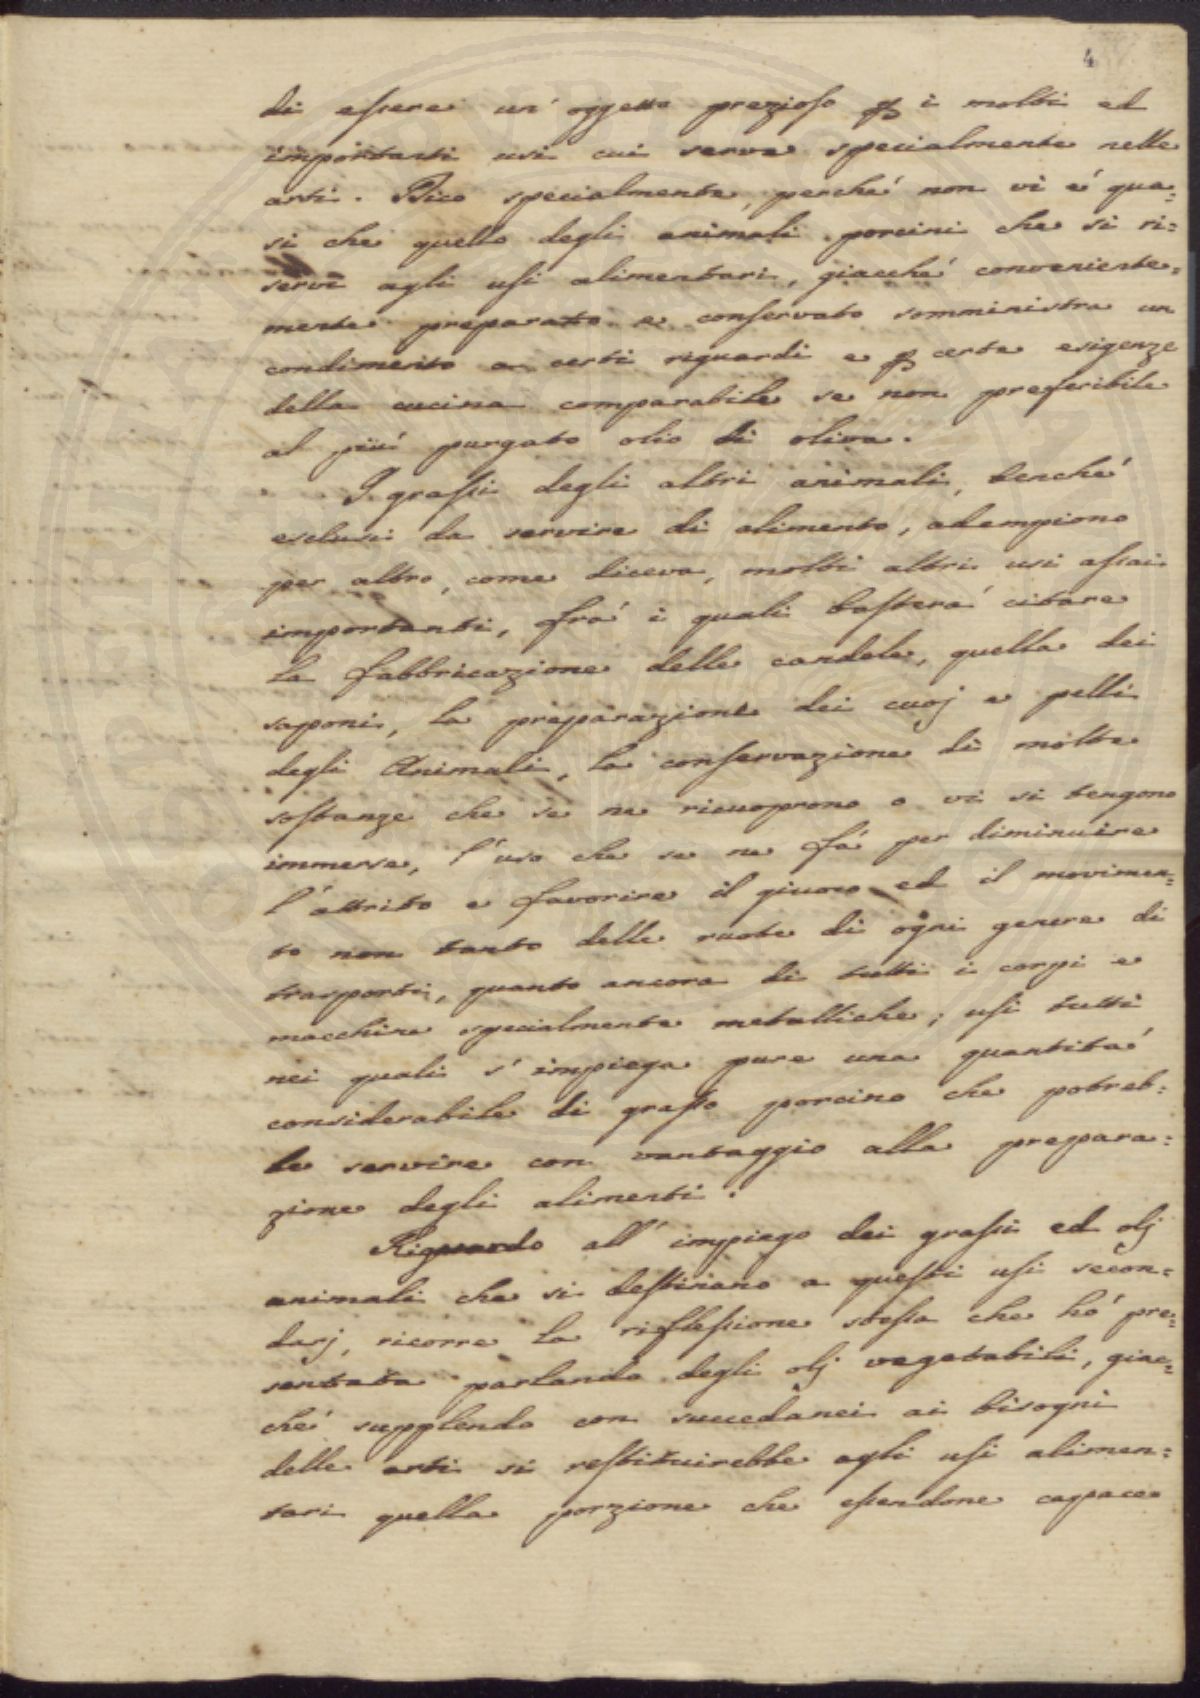 4
di essere un'oggetto prezioso p i molti ed
importanti usi cui serve specialmente nelle
arti. Dico specialmente, perché non vi é qua=
si che quello degli animali porcini che si ri=
servi agli usi alimentari, giacché conveniente=
mente preparato e conservato somministra un
condimento a certi riguardi e p certe esigenze
della cucina comparabile se non preferibile
al piú purgato olio di oliva.
I grassi degli altri animali, benché
esclusi da servire di alimento, adempiono
per altro, come diceva, molti altri usi assai
importanti, frá i quali basterá citare
la fabbricazione delle candele, quella dei
saponi, la preparazione dei cuoj e pelli
degli Animali, la conservazione di molte
sostanze che se ne ricuoprono o vi si tengono
immerse, l'uso che se ne fá per diminuire
l'attrito e favorire il giuoco ed il movimen=
to non tanto delle ruote di ogni genere di
trasporti, quanto ancora di tutti i corpi e
macchine specialmente metalliche; usi tutti
nei quali s'impiega pure una quantitá
considerabile di grasso porcino che potreb=
be servire con vantaggio alla prepara=
zione degli alimenti.
Riguardo all'impiego dei grassi ed olj
animali che si destinano a questi usi secon=
darj, ricorre la riflessione stessa che hó pre=
sentata parlando degli olj vegetabili, giac=
ché supplendo con succedanei ai bisogni
delle arti si restituirebbe agli usi alimen=
tari quella porzione che essendone capace